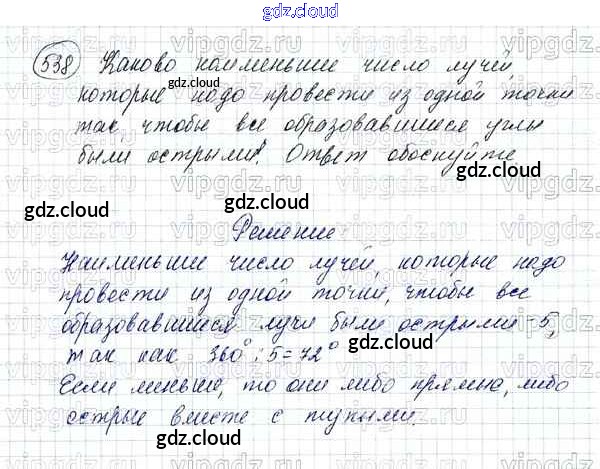 gdz.cloud
538 Каково наименьшие число лучей,
gdz.cloud
которые надо провести из одной точки
так, чтобы все образовавшиеся углы
были острыми? Ответ обоснуйте
gdz.cloud
gdz.cloud
gdz.cloud
Решение
Наименьшие число лучей, которые надо
провести из одной точки, чтобы все
образовавшиеся лучи были острыми -5,
так как 360° : 5 = 72°
gdz.cloud
Если меньше, то они либо прямые, либо
острые вместе с тупыми.
gdz.cloud